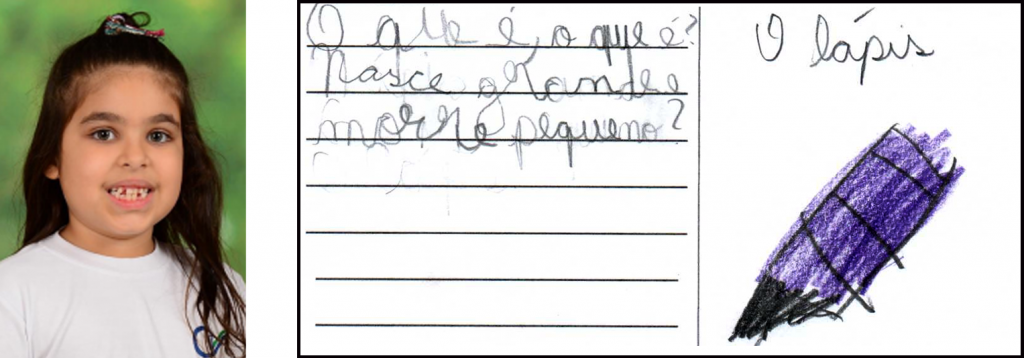 O que é, o que é?
Nasce grande e
morre pequeno?
O lápis